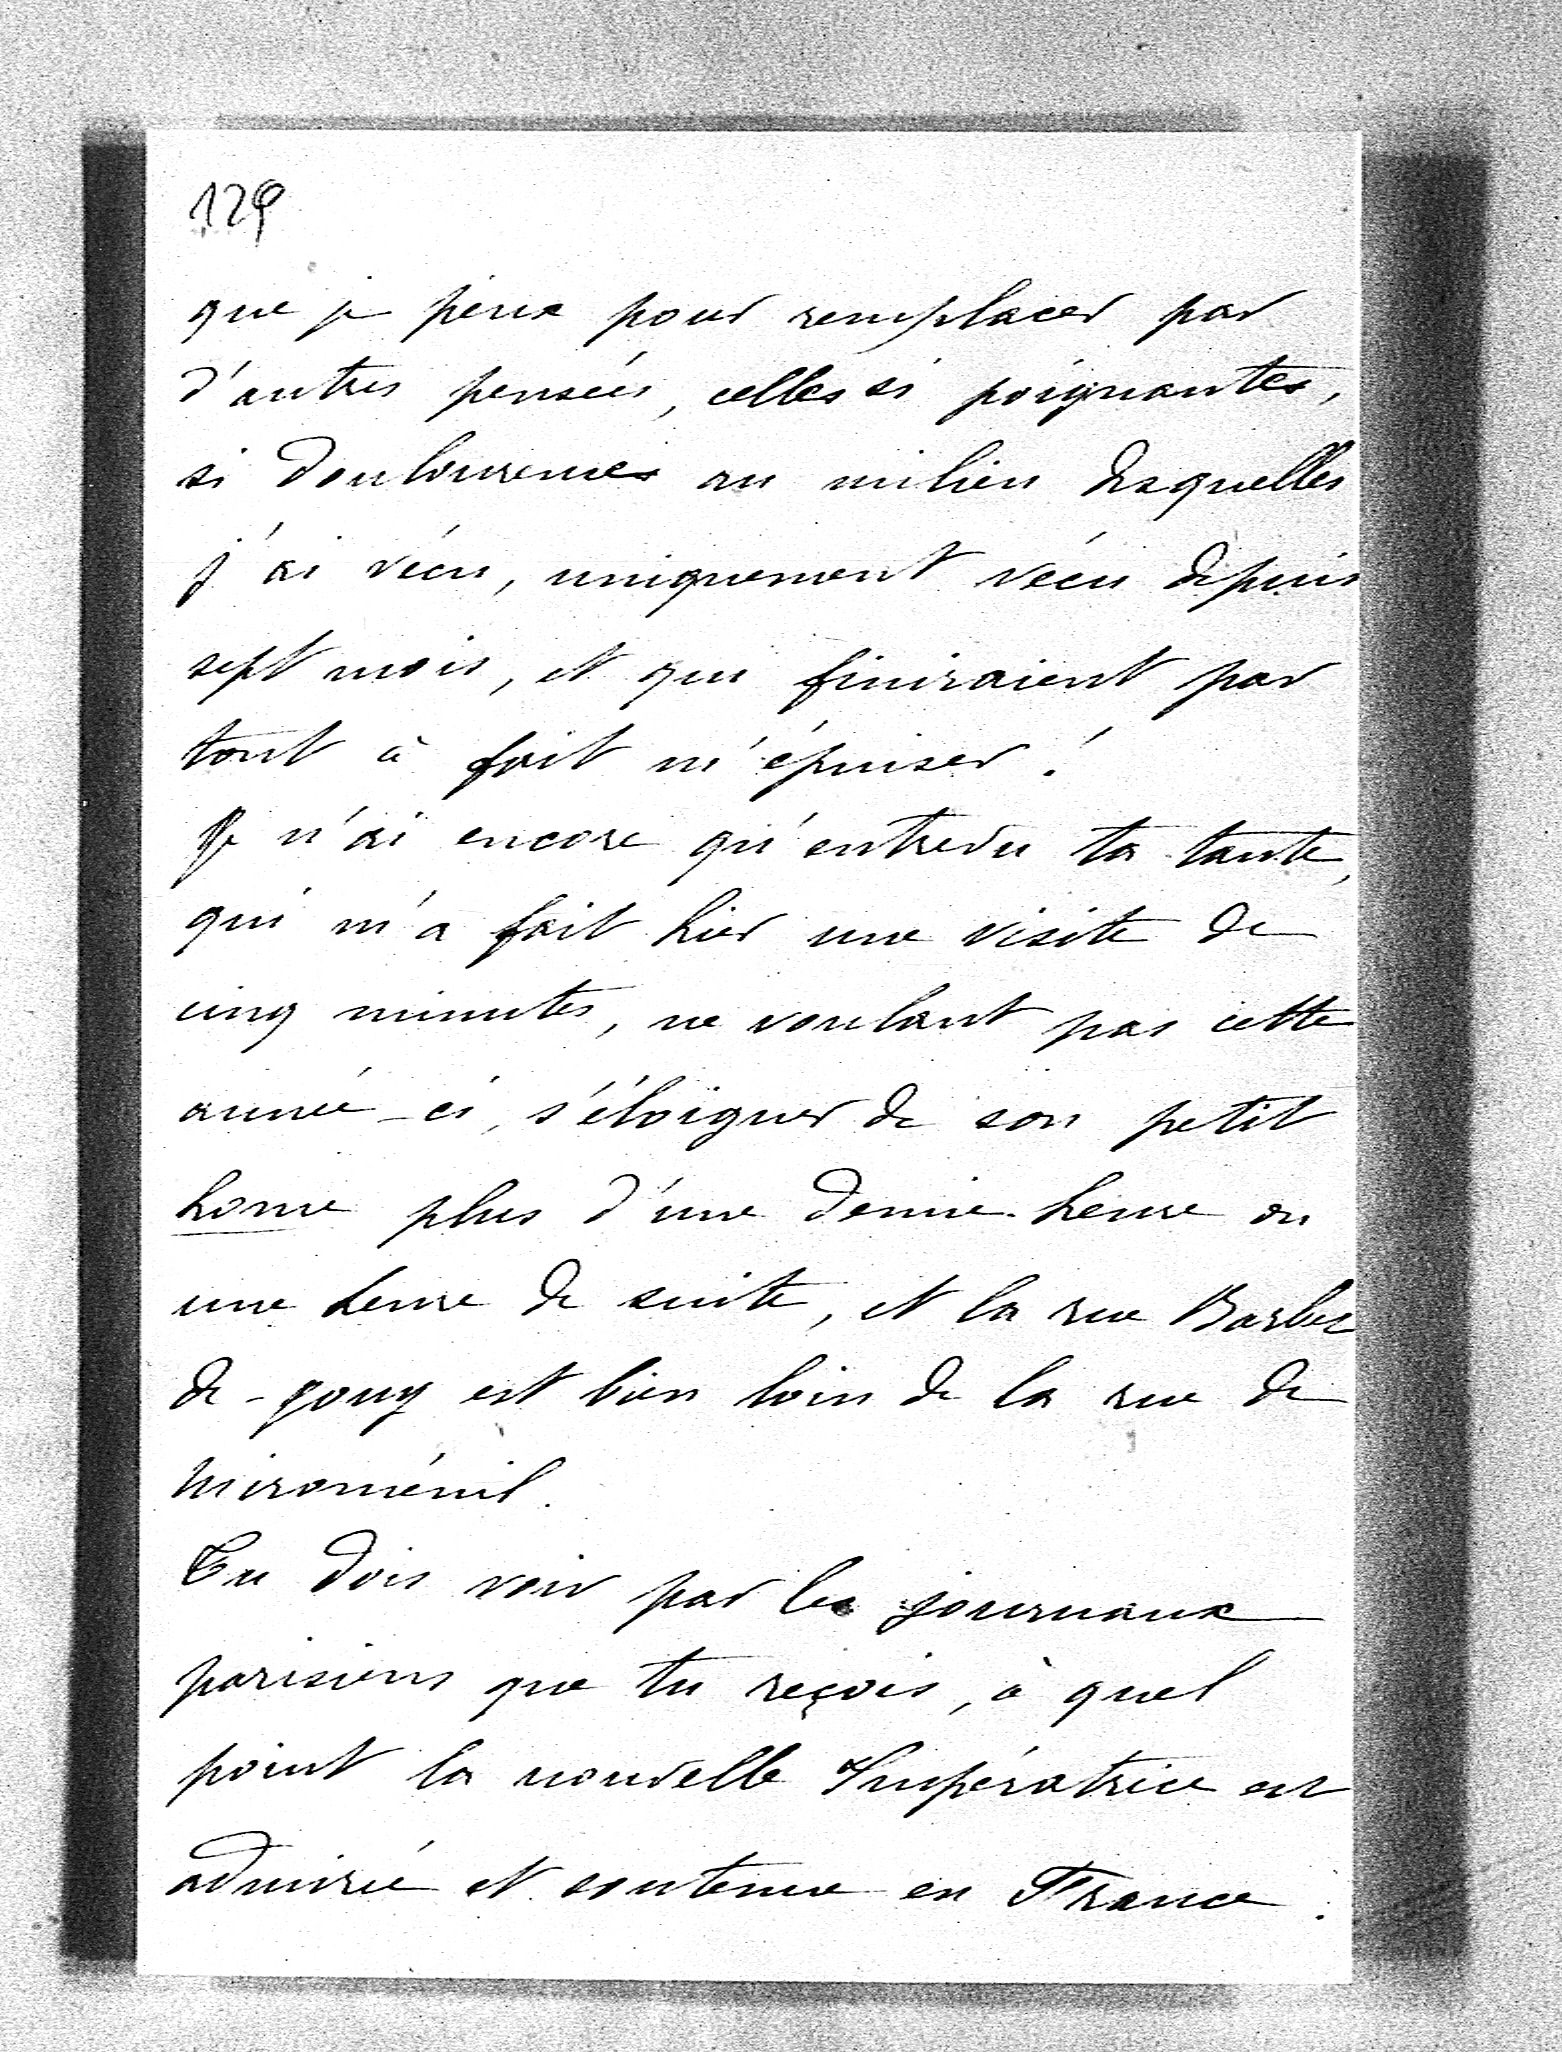 129
que je peux pour remplacer par
d'autres pensées, celles si poignantes,
si douloureuses au milieu desquelles
j'ai vécu, uniquement vécu depuis
sept mois, et qui finiraient par
tout à fait m'épuiser !
Je n'ai encore qu'entrevu ta tante,
qui m'a fait hier une visite de
cinq minutes, ne voulant pas cette
année-ci, s'éloigner de son petit
home plus d'une demie-heure ou
une heure de suite, et la rue Barbet
de-Jouy est bien loin de la rue de
Miroménil.
Tu dois voir par les journaux
parisiens que tu reçois, à quel
point la nouvelle Impératrice est
admirée et soutenue en France.